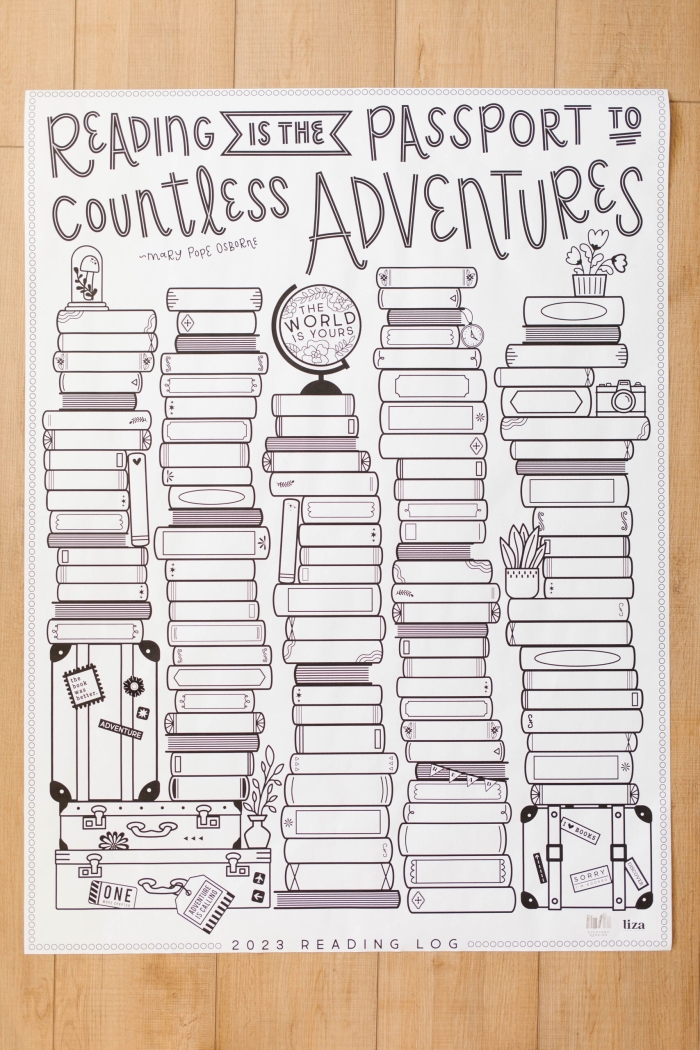 READING IS THE PASSPORT TO
COUNTLESS ADVENTURES
~MARY POPE OSBORNE
THE
WORLD
IS YOURS
the
book
was
better.
ADVENTURE
ONE
MORE CHAPTER
ADVENTURE
IS CALLING
I ♥ BOOKS
SORRY
I'M BOOKED
liza
2023 READING LOG